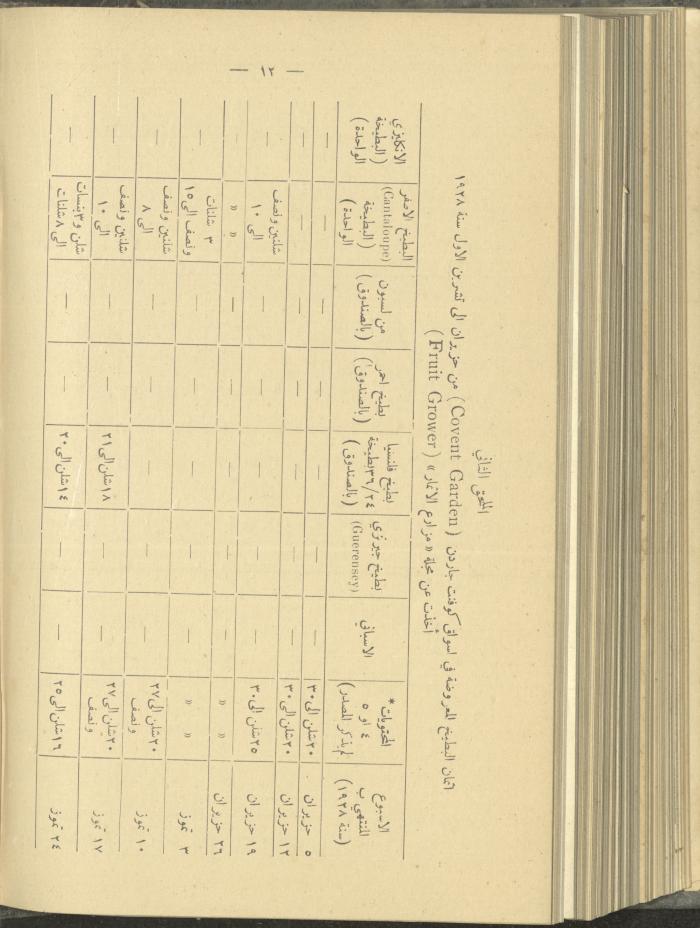 — ١٢ —
الملحق الثاني
اثمان البطيخ المعروضة في اسواق كوفنت جاردن (Covent Garden) من حزيران الى تشرين الاول سنة ١٩٢٨
أخذت عن مجلة « مزارع الاثمار » (Fruit Grower)
الاسبوع المنتهي ب (سنة ١٩٢٨) | المحتويات* ٤ او ٥ لم يذكر المصدر) | الاسباني | بطيخ جيرنزي (Guerensey) | بطيخ فلنسيا ٢٤/٣٦ بطيخة (بالصندوق) | بطيخ احمر (بالصندوق) | من لسبون (بالصندوق) | البطيخ الاصفر (Cantaloupe) (البطيخة الواحدة) | الانكليزي (البطيخة الواحدة)
٥ حزيران | ٢٠ شلن الى ٣٠ | — | — | — | — | — | — | —
١٢ حزيران | ٢٠ شلن الى ٣٠ | — | — | — | — | — | — | —
١٩ حزيران | ٢٥ شلن الى ٣٠ | — | — | — | — | — | شلنين ونصف الى ١٠ | —
٢٦ حزيران | » » | — | — | — | — | — | » » | —
٣ تموز | » » | — | — | — | — | — | ٣ شلنات ونصف الى ١٥ | —
١٠ تموز | ٢٠ شلن الى ٢٧ ونصف | — | — | — | — | — | شلنين ونصف الى ٨ | —
١٧ تموز | ٢٠ شلن الى ٢٧ ونصف | — | — | ١٨ شلن الى ٢١ | — | — | شلنين ونصف الى ١٠ | —
٢٤ تموز | ١٦ شلن الى ٢٥ | — | — | ١٤ شلن الى ٢٠ | — | — | شلن و٣ بنسات الى ٨ شلنات | —